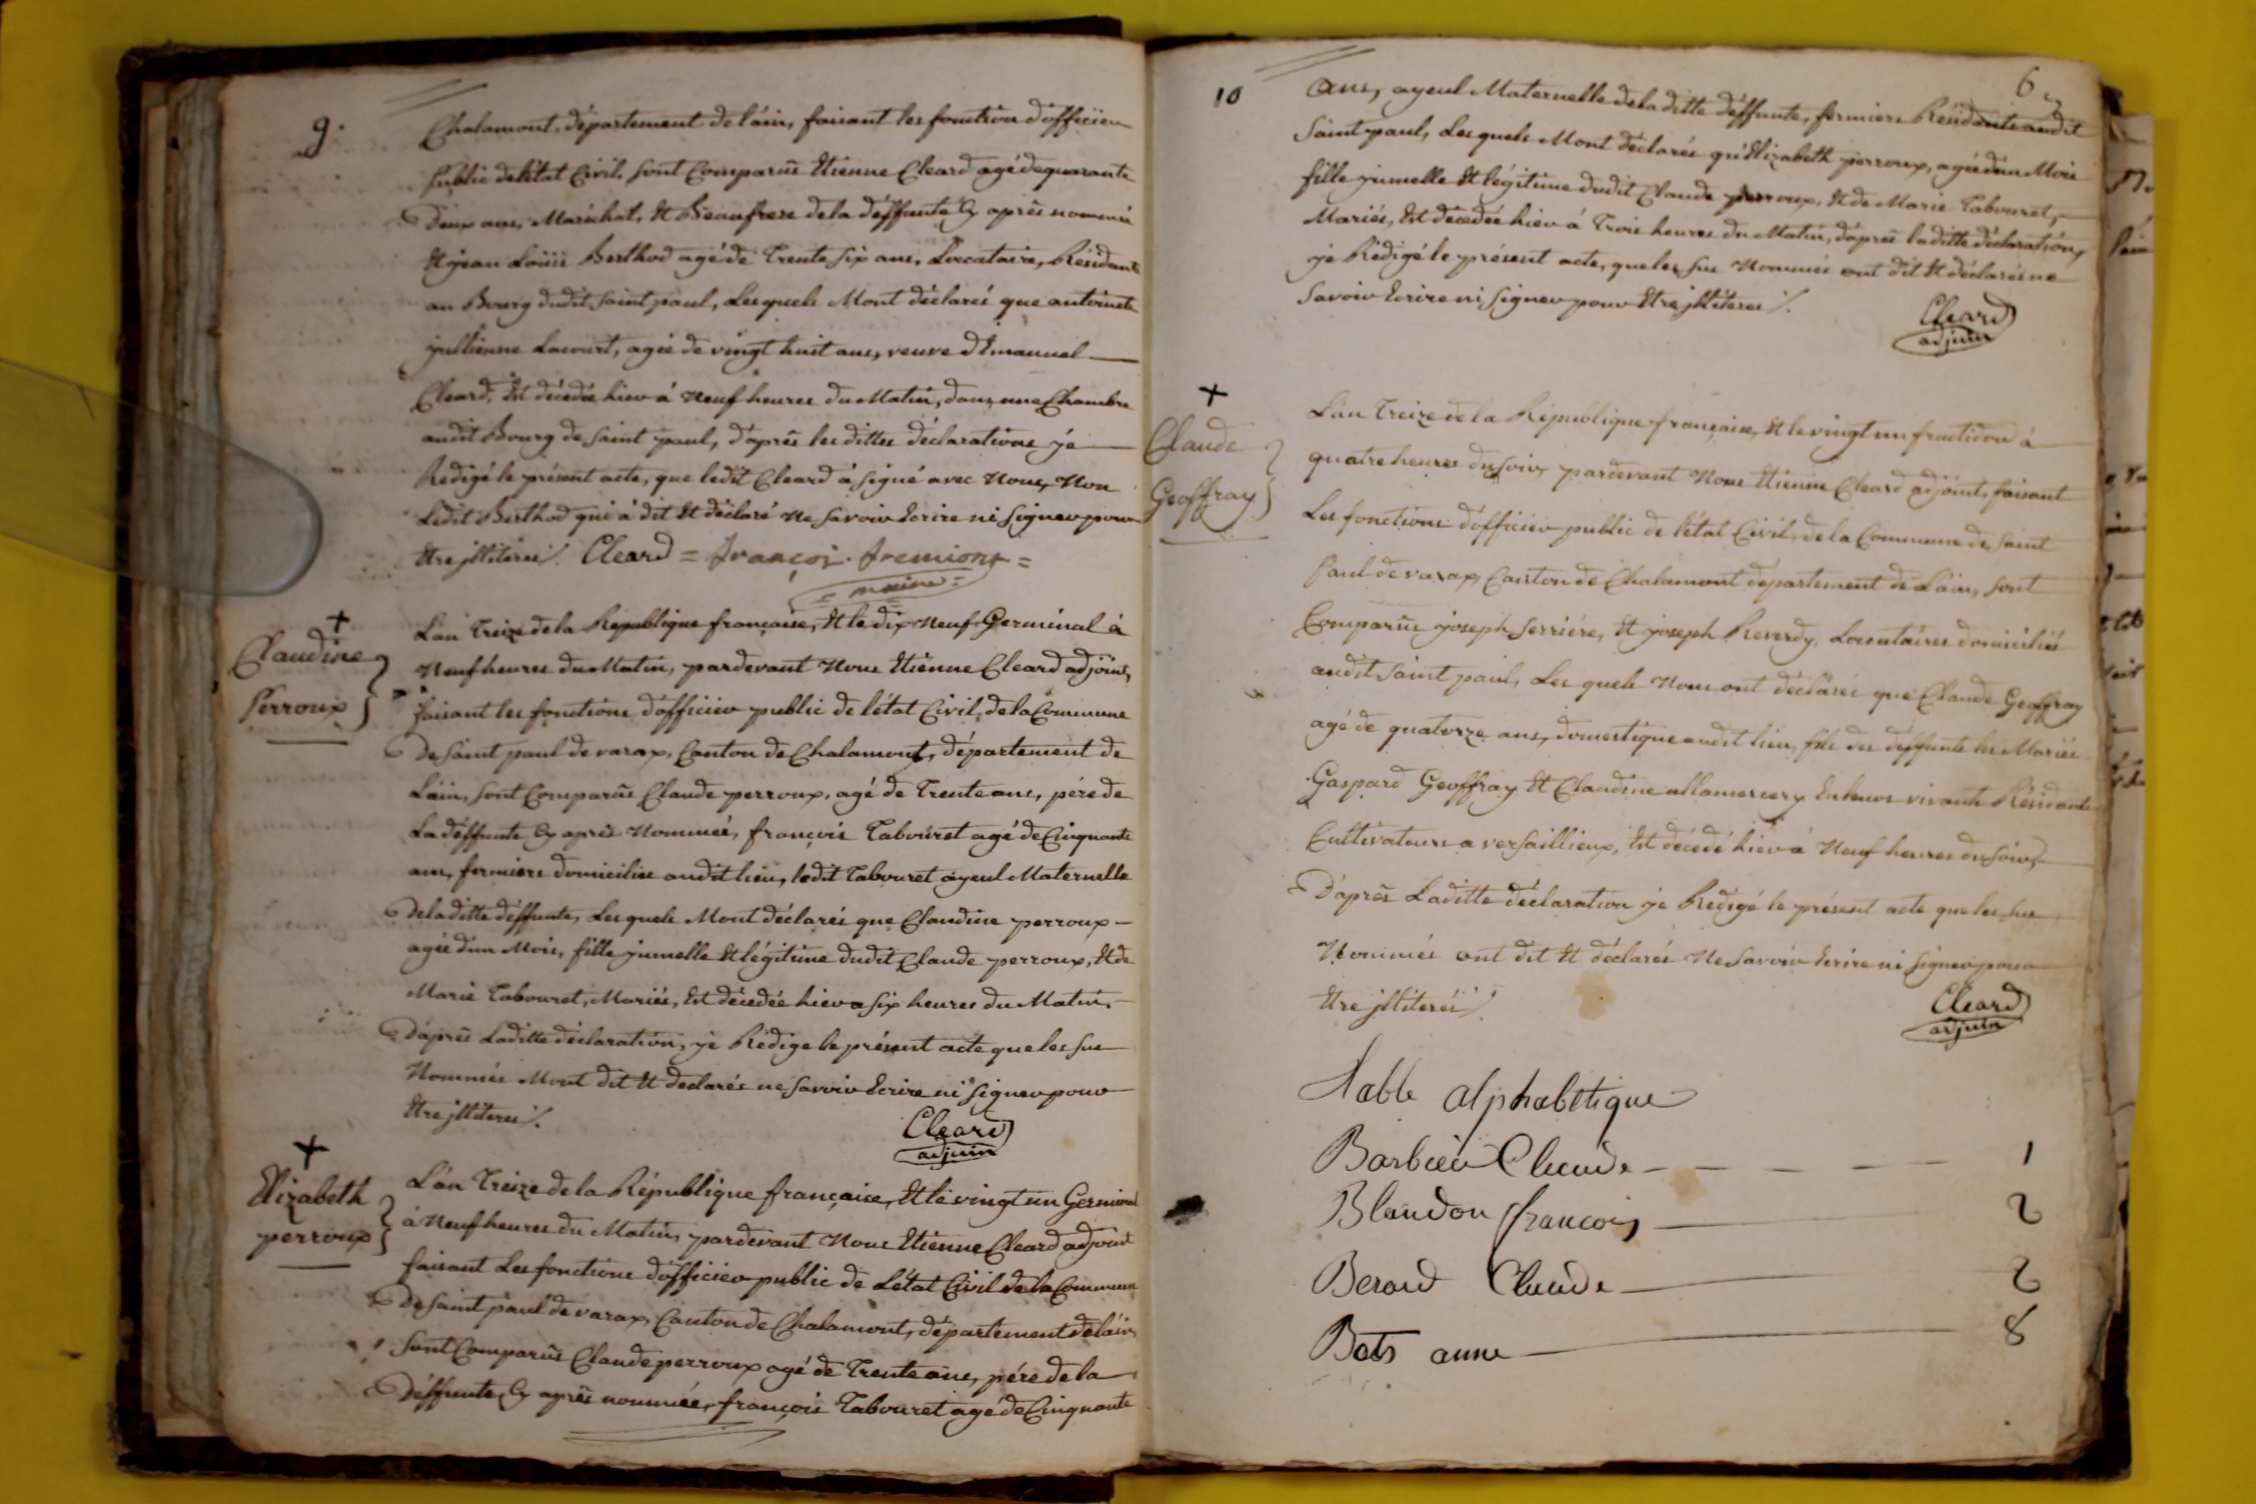 9.
Chalamont, département de l'ain, faisant les fonction d'officier
public de l'état Civil, sont Comparûs Etienne Cleard agé de quarante
Deux ans, Maréchal, Et Beaufrere de la déffunte Cy après nommée
Et jean Loüis Berthod agé de Trente Six ans, Locataire, Résidant
au Bourg dudit Saint paul, Lesquels M'ont déclarés que antoinette
jullienne Lacourt, agée de vingt huit ans, veuve d'Emanuel
Cleard, Est décédée hier à Neuf heures du Matin, dans une Chambre
audit Bourg de Saint paul, d'après les dittes déclarations j'é
Redigé le présent acte, que ledit Cleard à signé avec Nous, Non
Ledit Berthod qui à dit Et déclaré Ne Savoir Ecrire ni Signer pour
Etre jlliteréi/. Cleard = françoi. fremiont =
= maire =
+
Claudine
Perroux
L'an Treize de la République française, Et le dix Neuf Germinal à
Neuf heures du Matin, pardevant Nous Etienne Cleard adjoint,
faisant les fonctions d'officier public de l'état Civil, de la Commune
De Saint paul de varax, Canton de Chalamont, département de
L'ain, sont Comparûs Claude perroux, agé de Trente ans, pére de
La déffunte Cy après Nommée, françois Tabouret agé de Cinquante
ans, fermiers domiciliés audit lieu, ledit Tabouret ayeul Maternelle
De laditte déffunte, Lesquels M'ont déclarés que Claudine perroux
agée d'un Mois, fille jumelle Et légitime dudit Claude perroux, Et de
Marie Tabouret, Mariés, Est décédée hier a Six heures du Matin,
D'après Laditte déclaration, j'é Rédigé le présent acte que les sus
Nommés M'ont dit Et declarés ne Savoir Ecrire ni Signer pour
Etre jlliterés/.
Cleard
adjuin
+
Elizabeth
perroux
L'an Treize de la République française, Et le vingt un Germinal
à Neuf heures du Matin, pardevant Nous Etienne Cleard adjoint
faisant Les fonctions d'officier public de L'état Civil de la Commune
De Saint paul de varax, Canton de Chalamont, département de l'ain,
Sont Comparûs Claude perroux agé de Trente ans, pére de la
Déffunte Cy après nommée, françois Tabouret agé de Cinquante
10
6
ans, ayeul Maternelle de la ditte déffunte, fermiers Résidants audit
Saint paul, Lesquels M'ont déclarés qu'Elizabeth perroux, agée d'un Mois
fille jumelle Et légitime dudit Claude perroux, Et de Marie Tabouret,
Mariés, Est décédée hier à Trois heures du Matin, d'après laditte déclaration,
j'é Rédigé le présent acte, que les sus Nommés ont dit Et déclarés ne
Savoir Ecrire ni Signer pour Etre jlliteres/.
Cleard
adjuin
+
Claude
Geoffray
L'an Treize de la République française, Et le vingt un fructidor à
quatre heures du Soir, pardevant Nous Etienne Cleard adjoint, faisant
Les fonctions d'officier public de l'état Civil, de la Commune de Saint
Paul de varax, Canton de Chalamont département de L'ain, sont
Comparûs joseph Serriére, Et joseph Reverdy, Locataires domiciliés
audit Saint paul, Lesquels Nous ont déclarés que Claude Geoffray
agé de quatorze ans, domestique audit lieu, fils des déffunts les Mariés
Gaspard Geoffray Et Claudine allamercery En leurs vivants Résidants
Cultivateurs a versaillieux, Est décédé hier à Neuf heures du Soir,
D'après Laditte déclaration j'é Redigé le présent acte que les sus
Nommés ont dit Et déclarés Ne Savoir Ecrire ni Signer pour
Etre jlliteréi/.
Cleard
adjuin
table alphabetique
Barbier Claude 1
Blandon francois 2
Berard Claude 2
Bots anne 8